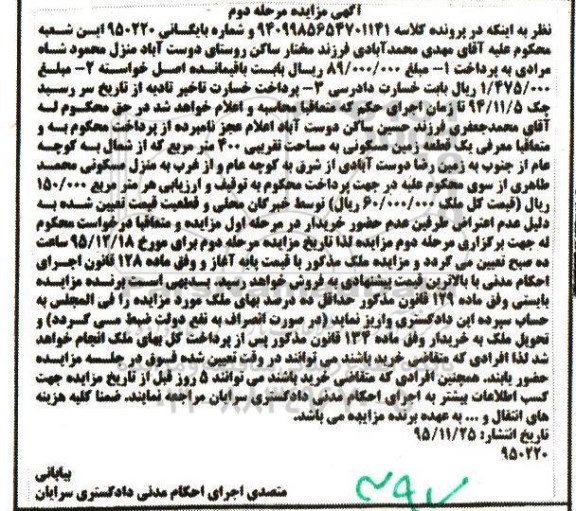 آگهی مزایده مرحله دوم
نظر به اینکه در پرونده کلاسه ۹۴۰۹۹۸۵۶۵۴۷۰۱۱۴۱ و شماره بایگانی ۹۵۰۲۲۰ این شعبه
محکوم علیه آقای مهدی محمدآبادی فرزند مختار ساکن روستای دوست آباد منزل محمود شاه
مرادی به پرداخت ۱- مبلغ ۸۹/۰۰۰/۰۰۰ ریال بابت باقیمانده اصل خواسته ۲- مبلغ
۱/۴۷۵/۰۰۰ ریال بابت خسارت دادرسی ۳- پرداخت خسارت تاخیر تادیه از تاریخ سر رسید
چک ۹۴/۱۱/۵ تا زمان اجرای حکم که متعاقبا محاسبه و اعلام خواهد شد در حق محکوم له
آقای محمدجعفری فرزند حسین ساکن دوست آباد اعلام عجز نامبرده از پرداخت محکوم به و
متعاقبا معرفی یک قطعه زمین مسکونی به مساحت تقریبی ۴۰۰ متر مربع که از شمال به کوچه
عام از جنوب به زمین رضا دوست آبادی از شرق به کوچه عام و از غرب به منزل مسکونی محمد
طاهری از سوی محکوم علیه در جهت پرداخت محکوم به توقیف و ارزیابی هر متر مربع ۱۵۰/۰۰۰
ریال (قیمت کل ملک ۶۰/۰۰۰/۰۰۰ ریال) توسط خبرگان محلی و قطعیت قیمت تعیین شده به
دلیل عدم اعتراض طرفین عدم حضور خریدار در مرحله اول مزایده و متعاقبا درخواست محکوم
له جهت برگزاری مرحله دوم مزایده لذا تاریخ مزایده مرحله دوم برای مورخ ۹۵/۱۲/۱۸ ساعت
ده صبح تعیین می گردد و مزایده ملک مذکور با قیمت پایه آغاز و وفق ماده ۱۲۸ قانون اجرای
احکام مدنی با بالاترین قیمت پیشنهادی به فروش خواهد رسید. بدیهی است برنده مزایده
بایستی وفق ماده ۱۲۹ قانون مذکور حداقل ده درصد بهای ملک مورد مزایده را فی المجلس به
حساب سپرده این دادگستری واریز نماید (در صورت انصراف به نفع دولت ضبط می گردد) و
تحویل ملک به خریدار وفق ماده ۱۳۴ قانون مذکور پس از پرداخت کل بهای ملک انجام خواهد
شد لذا افرادی که متقاضی خرید باشند می توانند در وقت تعیین شده فوق در جلسه مزایده
حضور یابند. همچنین افرادی که متقاضی خرید باشند می توانند ۵ روز قبل از تاریخ مزایده جهت
کسب اطلاعات بیشتر به اجرای احکام مدنی دادگستری سرایان مراجعه نمایند. ضمنا کلیه هزینه
های انتقال و ... به عهده برنده مزایده می باشد.
تاریخ انتشار: ۹۵/۱۱/۲۵
۹۵۰۲۲۰
بیابانی
متصدی اجرای احکام مدنی دادگستری سرایان